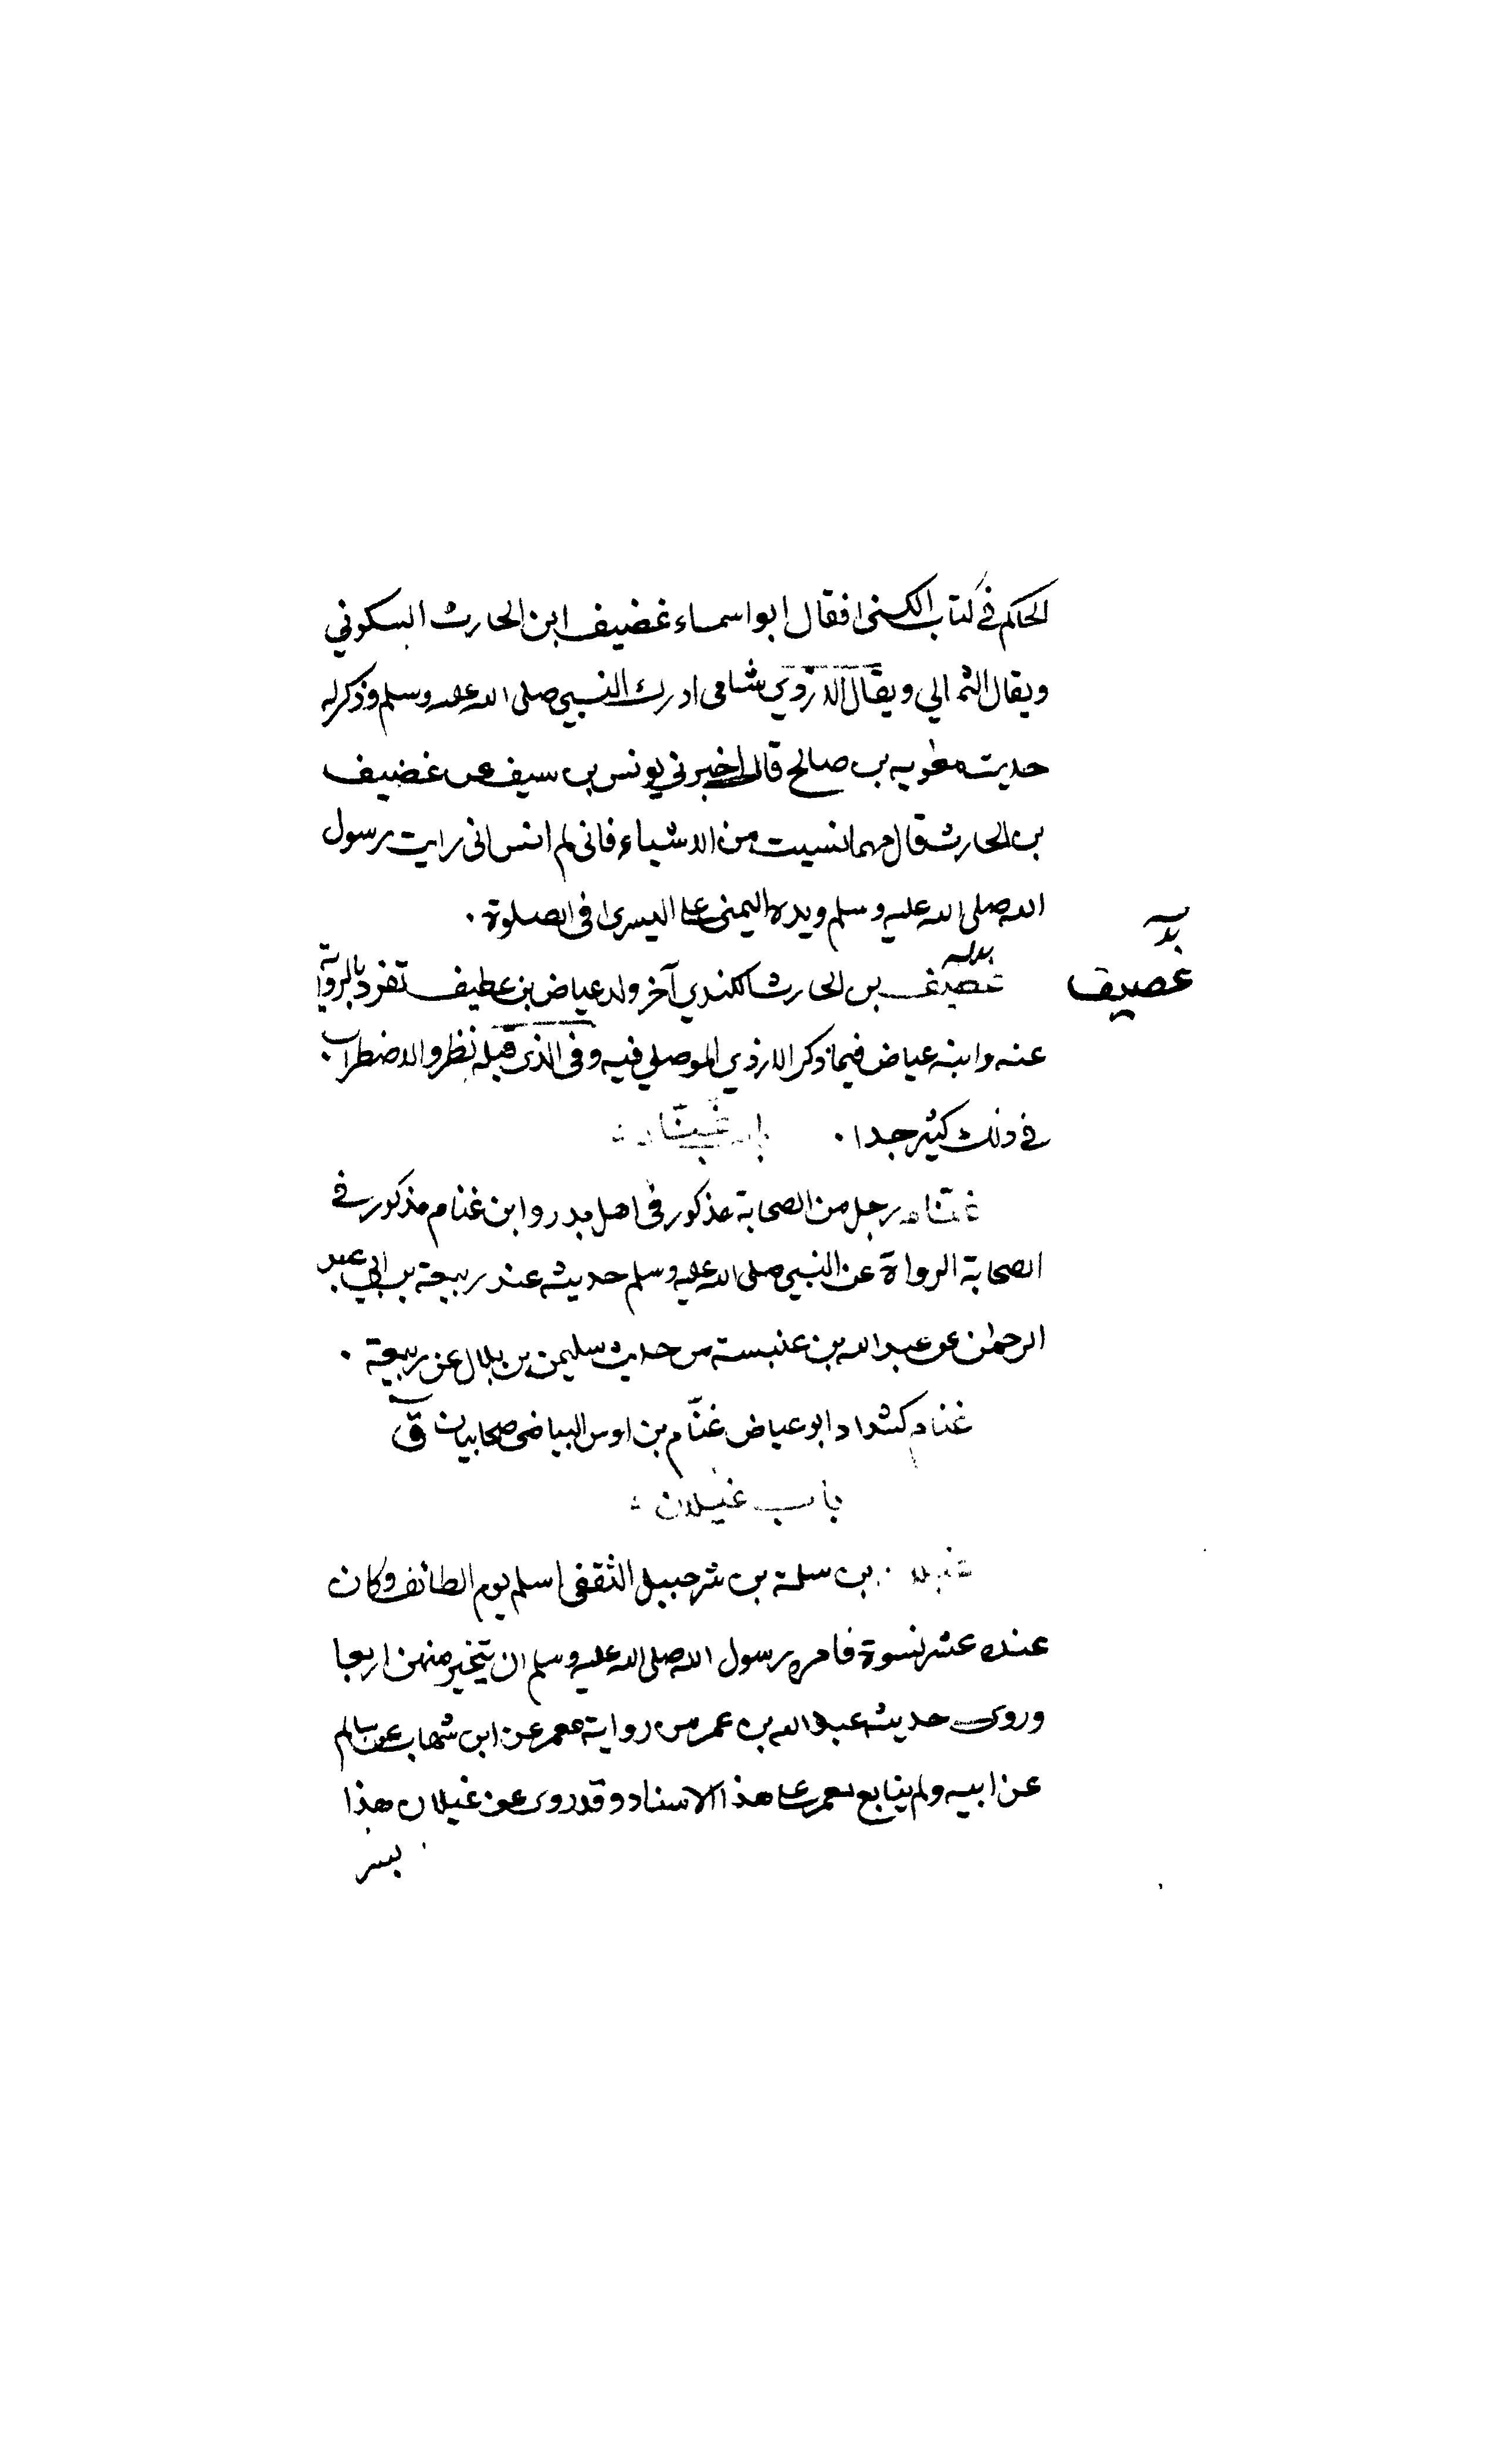 الحاكم في كتاب الكنى فقال ابو اسماء غضيف ابن الحارث السكوني
ويقال الثمالي ويقال الازدي شامي ادرك النبي صلى الله عليه وسلم وذكر له
حديث معوية بن صالح قال اخبرني يونس بن سيف عن غضيف
بن الحارث قال مهما نسيت من الاشياء فاني لم انس اني رايت رسول
الله صلى الله عليه وسلم ويده اليمنى على اليسرى في الصلوة ٠
غصيف بن الحارث الكندي آخر ولد عياض بن عطيف تفرد بالرواية
غصيف
عنه وابنه عياض فيما ذكر الازدي الموصلي فيه وفى الذى قبله نظر والاضطراب
في ذلك كثير جدا ٠ باب غنّام
غنّام رجل من الصحابة مذكور في اهل بدر وابن غنام مذكور في
الصحابة الرواة عن النبي صلى الله عليه وسلم حديثه عند ربيعة بن ابي عبد
الرحمن عن عبد الله بن عنبسة من حديث سليمن بن بلال عن ربيعة ٠
غنام كشداد ابو عياض غنّام بن اوس البياضى صحابيان ق
باب غيلان
غيلان بن سلمة بن شرحبيل الثقفى اسلم يوم الطائف وكان
عنده عشر نسوة فامره رسول الله صلى الله عليه وسلم ان يتخير منهن اربعا
وروى حديثه عبد الله بن عمر من رواية معمر عن ابن شهاب عن سالم
عن ابيه ولم يتابع معمر على هذا الاسناد وقد روى عن غيلان هذا
بسر